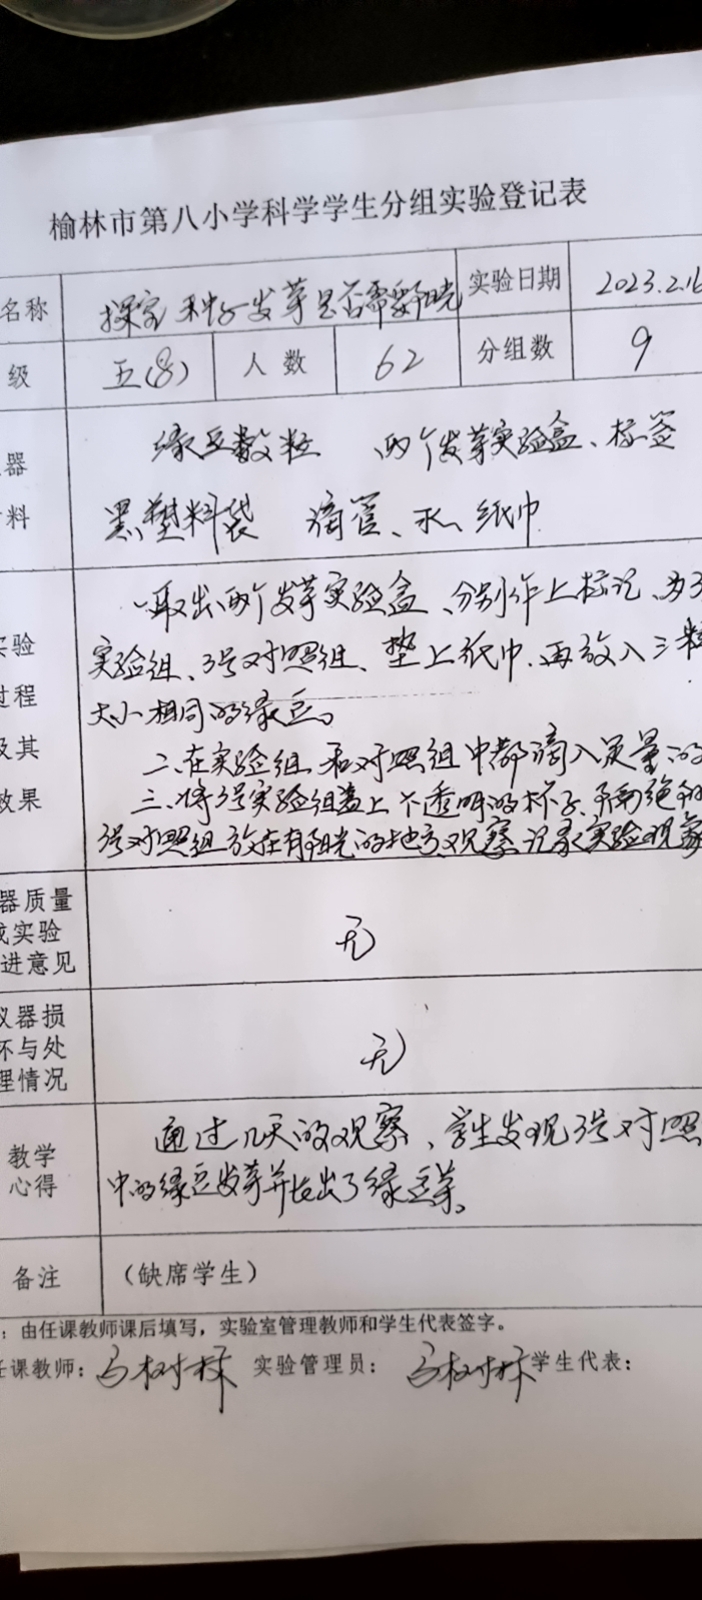 榆林市第八小学科学学生分组实验登记表
名称 探究种子发芽是否需要阳光 实验日期 2023.2.16
级 五(8) 人数 62 分组数 9
器 绿豆数粒 两个发芽实验盒、标签
料 黑塑料袋 滴管、水、纸巾
一、取出两个发芽实验盒、分别作上标记、为
实验 实验组、3号对照组、垫上纸巾、再放入三粒
过程 大小相同的绿豆。
及其 二、在实验组和对照组中都滴入足量的
效果 三、将3号实验组盖上不透明的杯子、
3号对照组放在有阳光的地方、观察、记录实验现象
器质量
或实验 无
进意见
仪器损
坏与处 无
理情况
教学 通过几天的观察、学生发现3号对照
心得 中的绿豆发芽并长出了绿豆芽。
备注 (缺席学生)
：由任课教师课后填写，实验室管理教师和学生代表签字。
任课教师： 实验管理员： 学生代表：